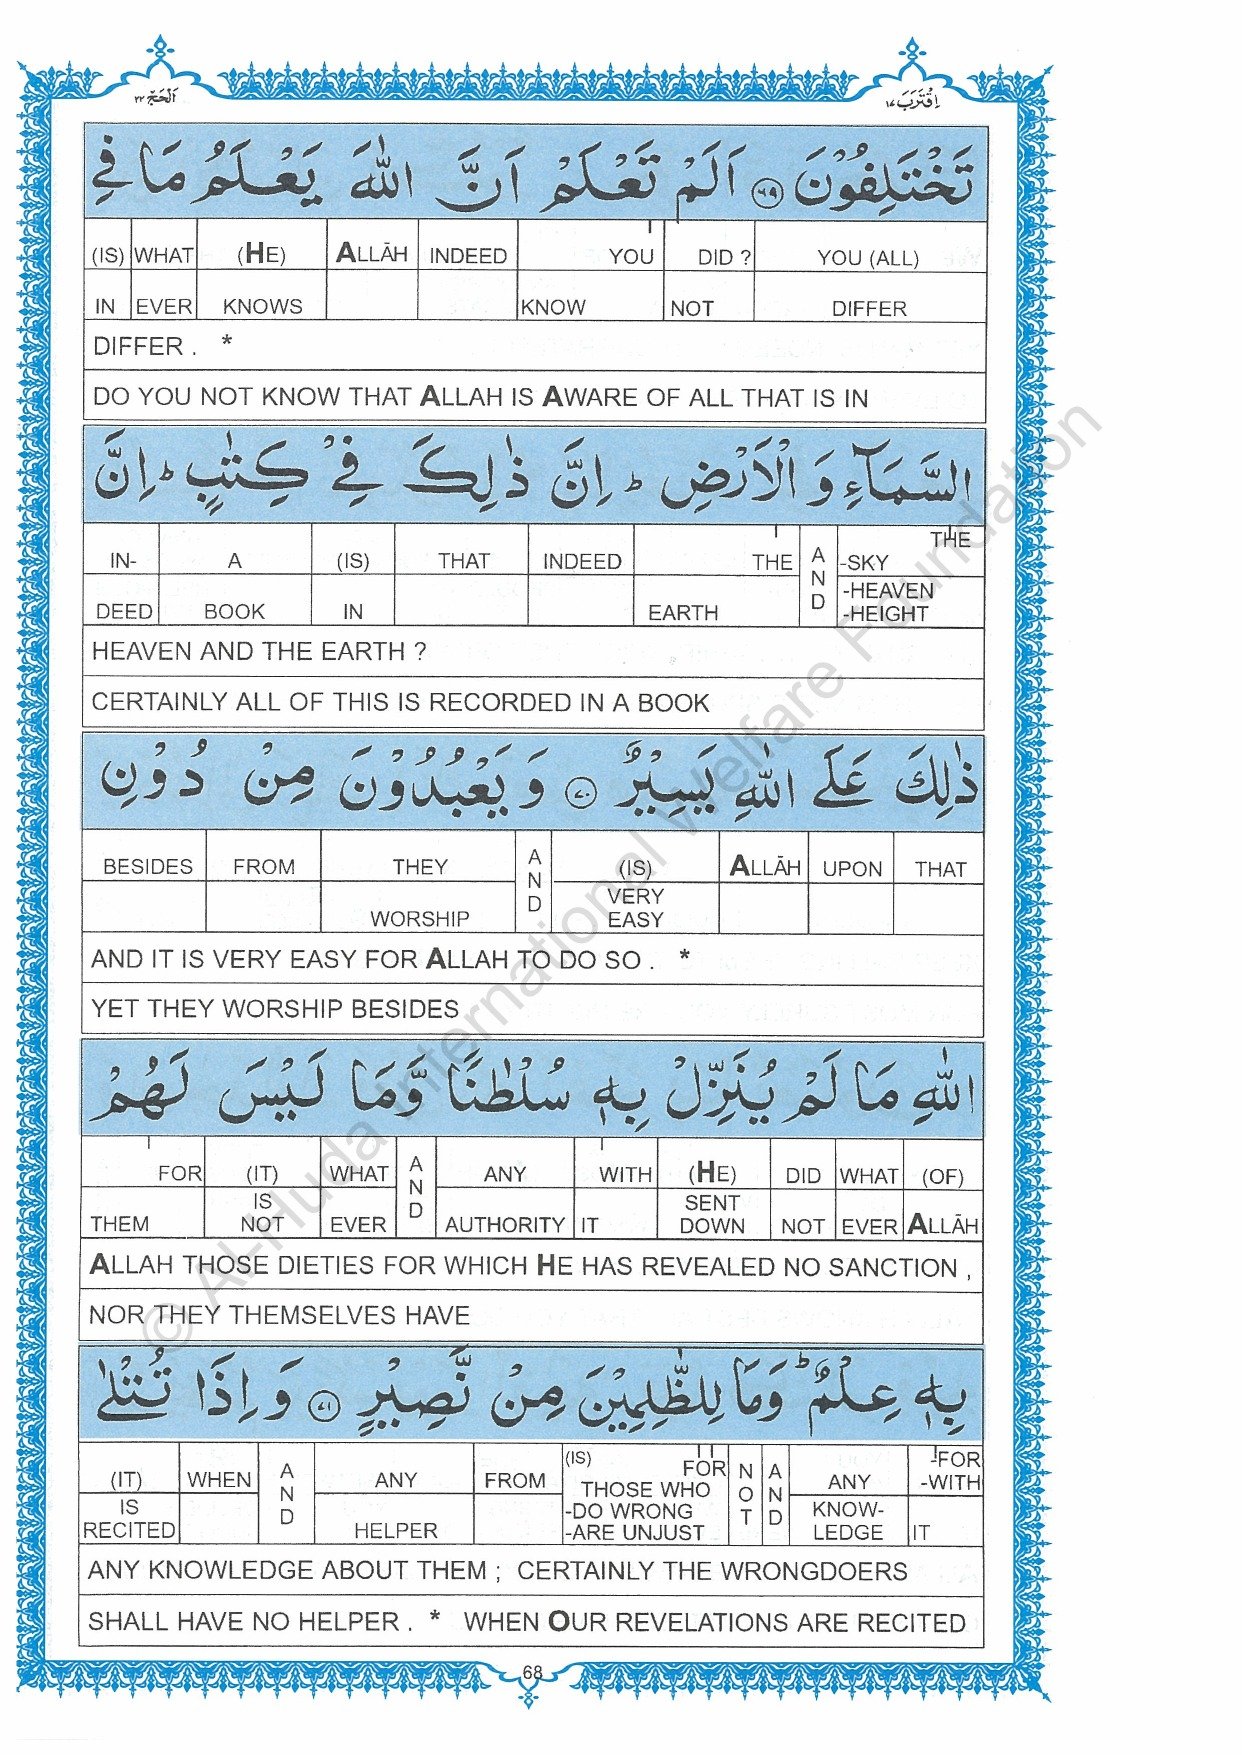 اَلْحَجّ ٢٢
اِقْتَرَبَ ١٧
تَخْتَلِفُوْنَ ٦٩ اَلَمْ تَعْلَمْ اَنَّ اللّٰهَ يَعْلَمُ مَا فِي
(IS) WHAT (HE) ALLĀH INDEED YOU DID ? YOU (ALL)
IN EVER KNOWS KNOW NOT DIFFER
DIFFER . *
DO YOU NOT KNOW THAT ALLAH IS AWARE OF ALL THAT IS IN
السَّمَآءِ وَ الْاَرْضِ ؕ اِنَّ ذٰلِكَ فِيْ كِتٰبٍ ؕ اِنَّ
IN- A (IS) THAT INDEED THE AND THE -SKY
DEED BOOK IN EARTH -HEAVEN -HEIGHT
HEAVEN AND THE EARTH ?
CERTAINLY ALL OF THIS IS RECORDED IN A BOOK
ذٰلِكَ عَلَى اللّٰهِ يَسِيْرٌ ٧٠ وَ يَعْبُدُوْنَ مِنْ دُوْنِ
BESIDES FROM THEY AND (IS) ALLĀH UPON THAT
WORSHIP VERY EASY
AND IT IS VERY EASY FOR ALLAH TO DO SO . *
YET THEY WORSHIP BESIDES
اللّٰهِ مَا لَمْ يُنَزِّلْ بِهٖ سُلْطٰنًا وَّمَا لَيْسَ لَهُمْ
FOR (IT) WHAT AND ANY WITH (HE) DID WHAT (OF)
THEM IS NOT EVER AUTHORITY IT SENT DOWN NOT EVER ALLĀH
ALLAH THOSE DIETIES FOR WHICH HE HAS REVEALED NO SANCTION ,
NOR THEY THEMSELVES HAVE
بِهٖ عِلْمٌ ؕ وَمَا لِلظّٰلِمِيْنَ مِنْ نَّصِيْرٍ ٧١ وَ اِذَا تُتْلٰى
(IT) WHEN AND ANY FROM (IS) FOR THOSE WHO NOT AND ANY -FOR -WITH
IS RECITED HELPER -DO WRONG -ARE UNJUST KNOW- LEDGE IT
ANY KNOWLEDGE ABOUT THEM ; CERTAINLY THE WRONGDOERS
SHALL HAVE NO HELPER . * WHEN OUR REVELATIONS ARE RECITED
68
© Al-Huda International Welfare Foundation